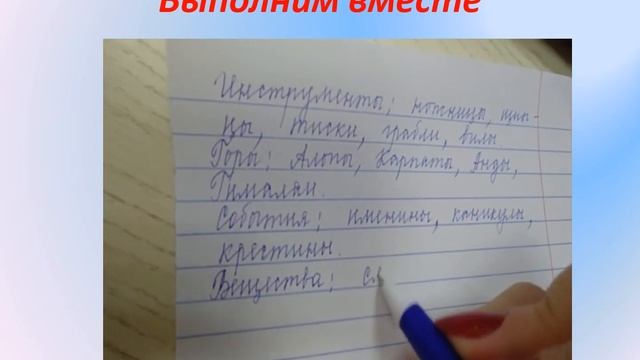 Выполним вместе
Инструменты: ножницы, щип-
цы, тиски, грабли, вилы
Горы: Альпы, Карпаты, Анды,
Гималаи.
События: именины, каникулы,
крестины.
Вещества: сл